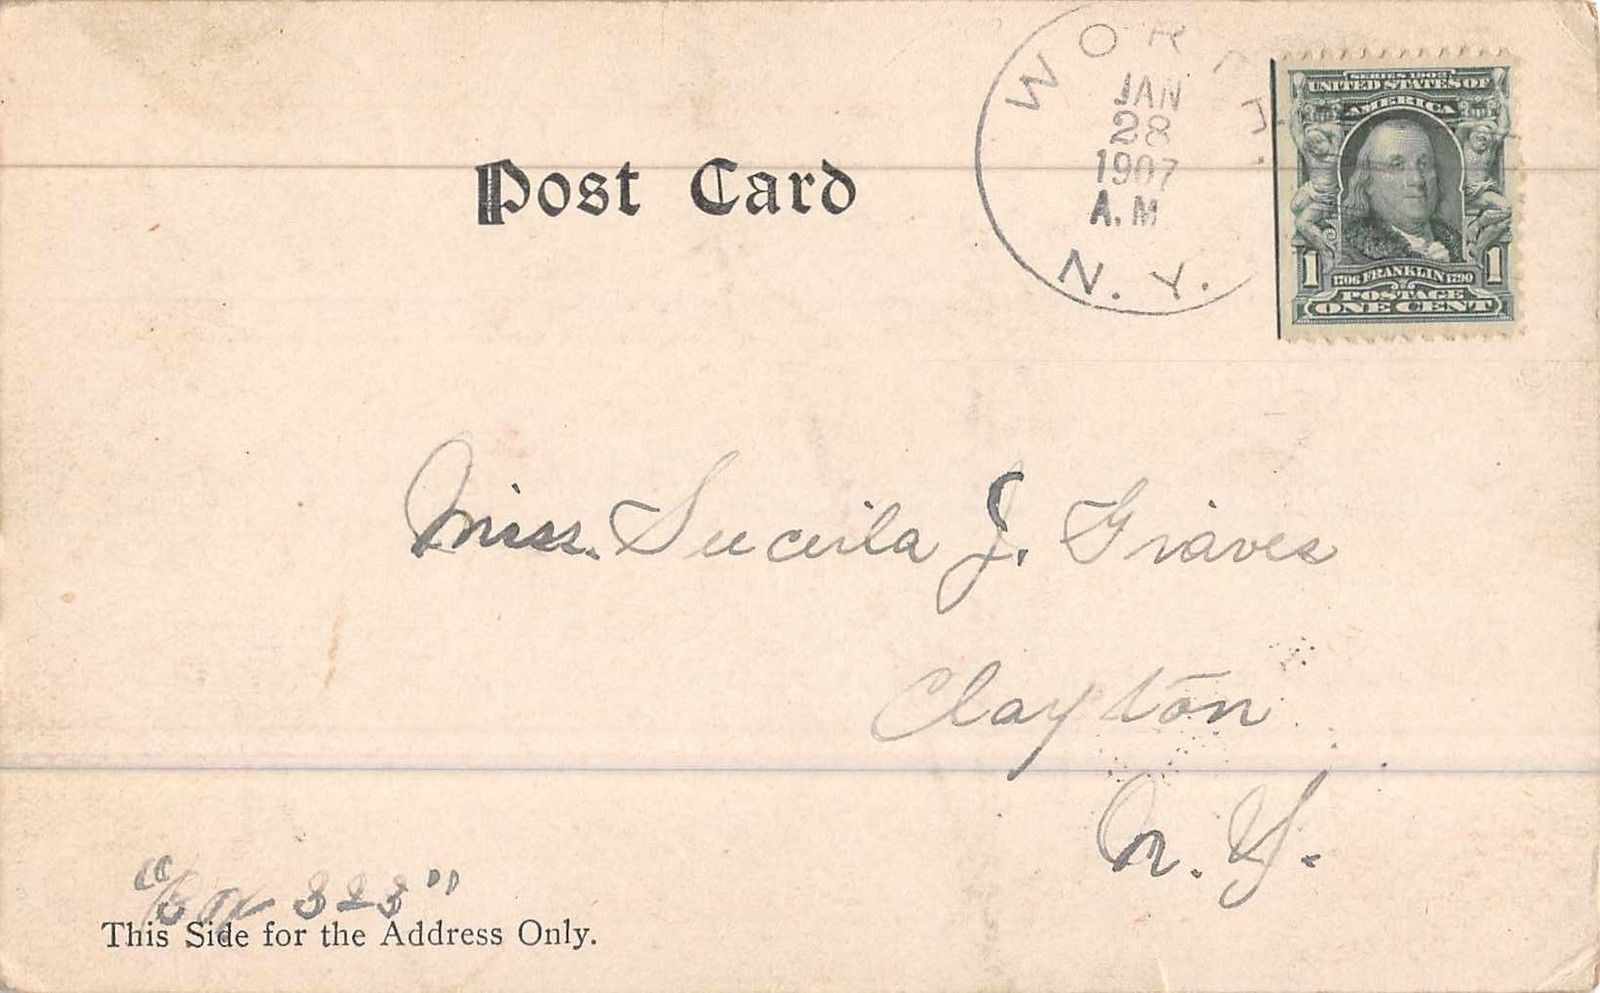 WORTH.
JAN
28
1907
A.M.
N.Y.
SERIES 1902
UNITED STATES OF
AMERICA
1 1706 FRANKLIN 1790 1
POSTAGE
ONE CENT
Post Card
Miss. Lucuila J. Graves
Clayton
N. Y.
"Box 323"
This Side for the Address Only.